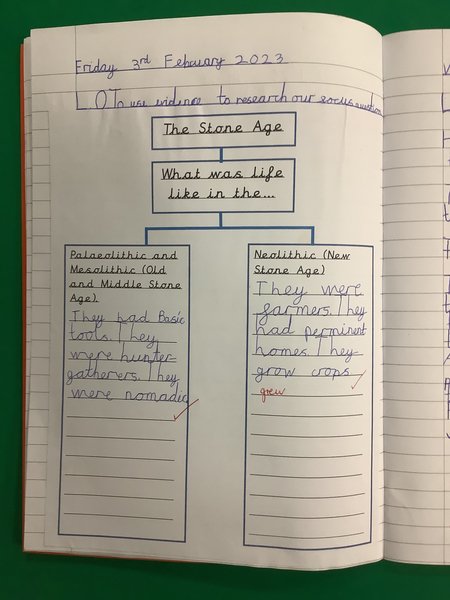 Friday 3rd February 2023
L.O To use evidence to research our focus question
The Stone Age
What was life
like in the...
Palaeolithic and
Mesolithic (Old
and Middle Stone
Age).
They had Basic
tools. They
were hunter-
gatherers. They
were nomadic
Neolithic (New
Stone Age)
They were
farmers. They
had perminent
homes. They
grow crops
grew